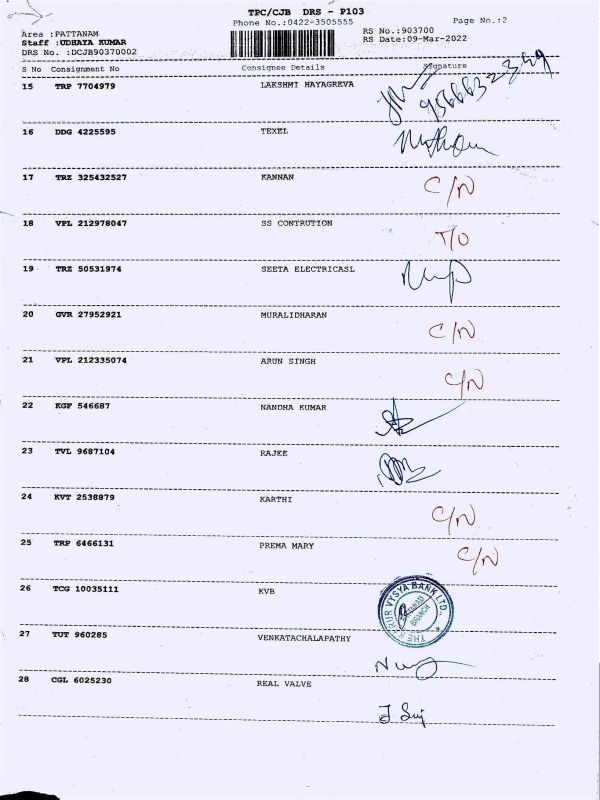 TPC/CJB DRS - P103
Phone No.:0422-3505555
Page No.:2
Area :PATTANAM
Staff :UDHAYA KUMAR
DRS No. :DCJB90370002
RS No.:903700
RS Date:09-Mar-2022
S No Consignment No Consignee Details Signature
15 TRP 7704979 LAKSHMI HAYAGREVA
16 DDG 4225595 TEXEL
17 TRZ 325432527 KANNAN C/N
18 VPL 212978047 SS CONTRUTION T/O
19 TRZ 50531974 SEETA ELECTRICASL
20 GVR 27952921 MURALIDHARAN C/N
21 VPL 212335074 ARUN SINGH C/N
22 KGF 546687 NANDHA KUMAR
23 TVL 9687104 RAJEE
24 KVT 2538879 KARTHI C/N
25 TRP 6466131 PREMA MARY C/N
26 TCG 10035111 KVB THE KARUR VYSYA BANK LTD. PATTANAM BRANCH
27 TUT 960285 VENKATACHALAPATHY
28 CGL 6025230 REAL VALVE